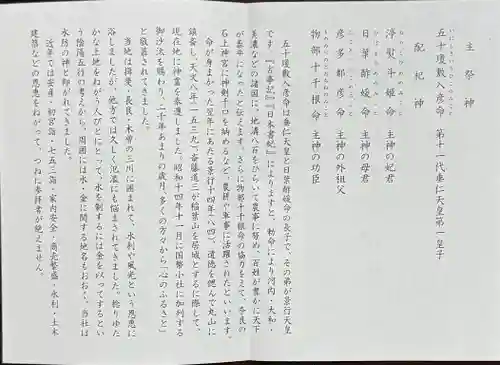 主祭神
いにしきいりひこのみこと
五十瓊敷入彦命 第十一代垂仁天皇第一皇子
配祀神
渟熨斗姫命 主神の妃君
日葉酢媛命 主神の母君
彦多都彦命 主神の外祖父
もののべのとおちねのみこと
物部十千根命 主神の功臣
五十瓊敷入彦命は垂仁天皇と日葉酢媛命の長子で、その弟が景行天皇
です。『古事記』『日本書紀』によりますと、勅命により河内・大和・
美濃などの諸国に、池溝八百をひらいて農事に努め、百姓が豊かに天下
が泰平になったと伝えます。さらに物部十千根命の協力をえて、奈良の
石上神宮に神剣千口を納めるなど、農耕や軍事に活躍されたといいます。
命が身まかった翌年にあたる景行十四年(八四)、遺徳を偲んで丸山に
鎮斎し、天文八年(一五三九)、斎藤道三が稲葉山を居城とするに際して、
現在地に神霊を奉遷しました。昭和十四年十一月に国幣小社に加列する
御沙汰を賜わり、二千年あまりの歳月、多くの方々から「心のふるさと」
と敬慕されてきました。
当地は揖斐・長良・木曽の三川に囲まれて、水利や風光という恩恵に
浴しましたが、他方では久しく氾濫にも悩まされてきました。稔りゆた
かな土地をねがう人びとにとって、水を制するには金を以ってするとい
う陰陽五行の考えから、周囲には水・金に関する地名もおおく、当社は
水防の神と仰がれてきました。
近年では安産・初宮詣・七五三詣・家内安全・商売繁盛・水利・土木
建築などの恩恵をねがって、つねに参拝者が絶えません。